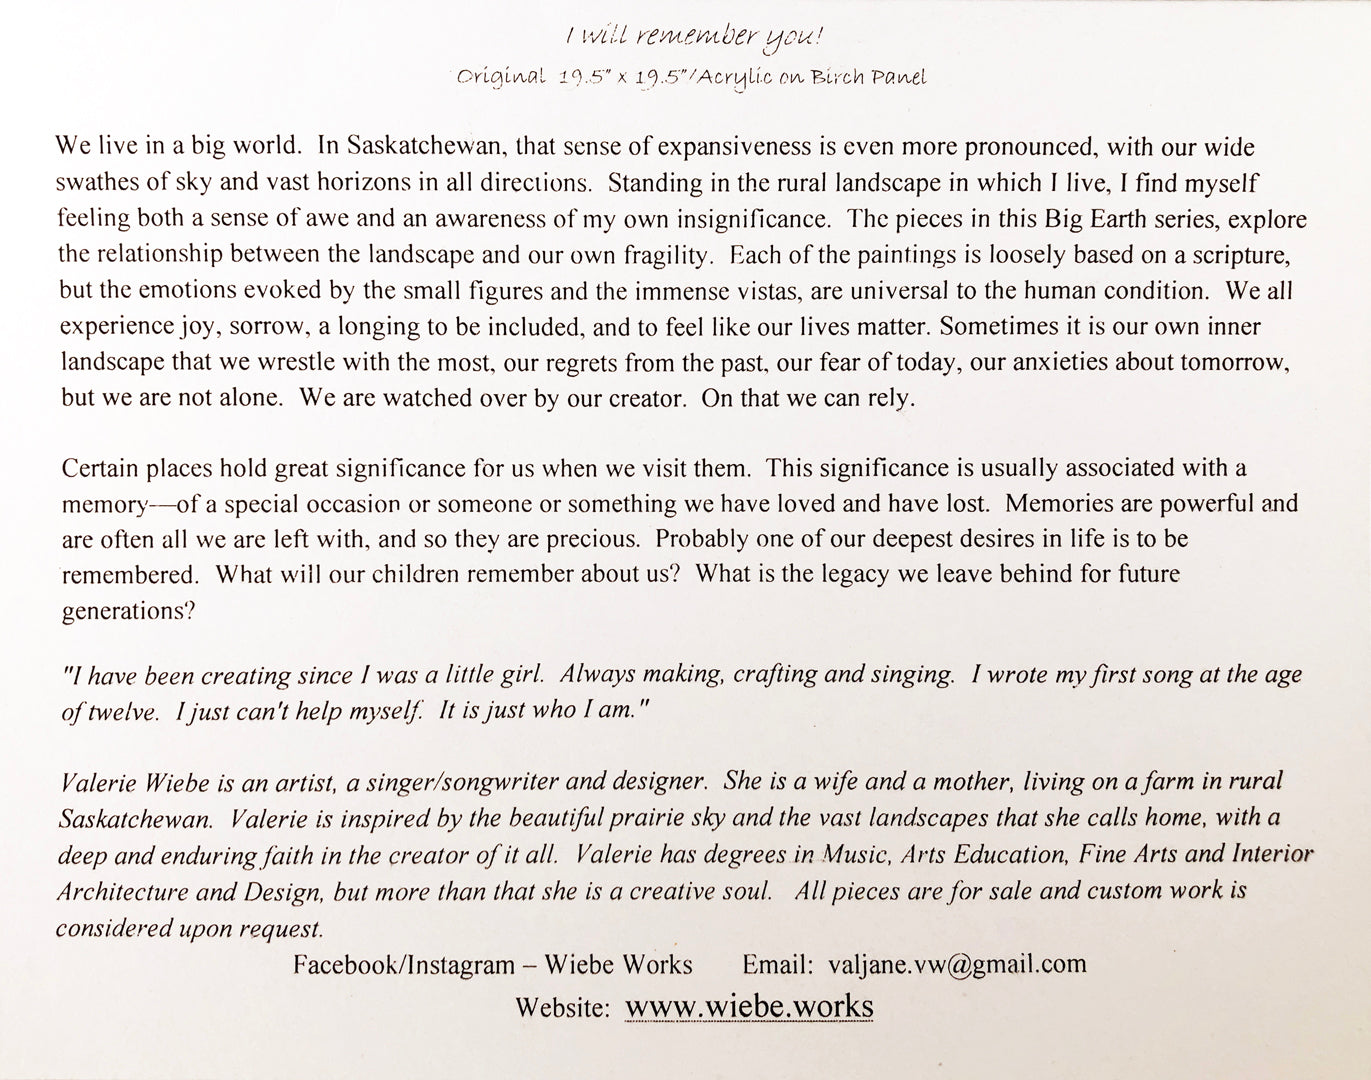 I will remember you!
Original 19.5" x 19.5"/Acrylic on Birch Panel
We live in a big world.  In Saskatchewan, that sense of expansiveness is even more pronounced, with our wide
swathes of sky and vast horizons in all directions.  Standing in the rural landscape in which I live, I find myself
feeling both a sense of awe and an awareness of my own insignificance.  The pieces in this Big Earth series, explore
the relationship between the landscape and our own fragility.  Each of the paintings is loosely based on a scripture,
but the emotions evoked by the small figures and the immense vistas, are universal to the human condition.  We all
experience joy, sorrow, a longing to be included, and to feel like our lives matter. Sometimes it is our own inner
landscape that we wrestle with the most, our regrets from the past, our fear of today, our anxieties about tomorrow,
but we are not alone.  We are watched over by our creator.  On that we can rely.
Certain places hold great significance for us when we visit them.  This significance is usually associated with a
memory-—of a special occasion or someone or something we have loved and have lost.  Memories are powerful and
are often all we are left with, and so they are precious.  Probably one of our deepest desires in life is to be
remembered.  What will our children remember about us?  What is the legacy we leave behind for future
generations?
"I have been creating since I was a little girl.  Always making, crafting and singing.  I wrote my first song at the age
of twelve.  I just can't help myself.  It is just who I am."
Valerie Wiebe is an artist, a singer/songwriter and designer.  She is a wife and a mother, living on a farm in rural
Saskatchewan.  Valerie is inspired by the beautiful prairie sky and the vast landscapes that she calls home, with a
deep and enduring faith in the creator of it all.  Valerie has degrees in Music, Arts Education, Fine Arts and Interior
Architecture and Design, but more than that she is a creative soul.   All pieces are for sale and custom work is
considered upon request.
Facebook/Instagram – Wiebe Works      Email:  valjane.vw@gmail.com
Website:  www.wiebe.works